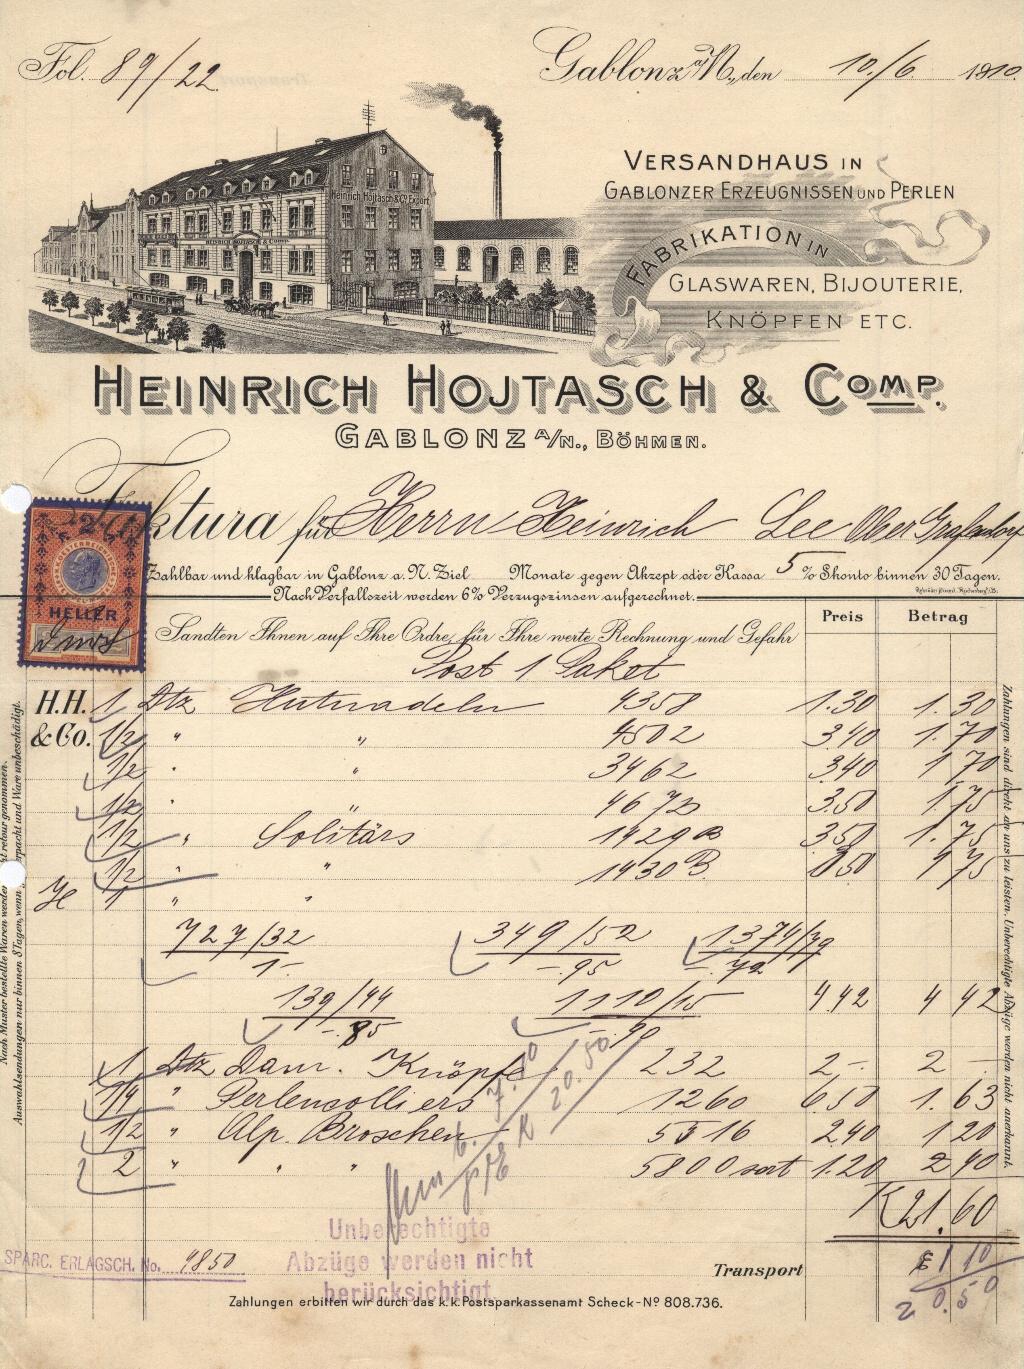 Fol. 89/22
Gablonz a/N., den 10./6 1910.
Heinrich Hojtasch & Co. Export
HEINRICH HOJTASCH & COMP.
VERSANDHAUS IN
GABLONZER ERZEUGNISSEN UND PERLEN
FABRIKATION IN
GLASWAREN, BIJOUTERIE,
KNÖPFEN ETC.
HEINRICH HOJTASCH & COMP.
GABLONZ A/N., BÖHMEN.
Faktura für Herrn Heinrich Lee Ober Grafendorf
2
HELLER
Zahlbar und klagbar in Gablonz a. N. Ziel Monate gegen Akzept oder Kassa 5 % Skonto binnen 30 Tagen.
Nach Verfallszeit werden 6% Verzugszinsen aufgerechnet.
Sandten Ihnen auf Ihre Ordre, für Ihre werte Rechnung und Gefahr Preis Betrag
Post 1 Paket
H.H. & Co.
1 Dtz Hutnadeln 4358 1.30 1.30
1/2 " " 4502 3.40 1.70
1/2 " " 3462 3.40 1 70
1/2 " 4672 3.50 1.75
1/2 " Solitärs 1429 B 3.50 1.75
1/2 " " 1430 B 3.50 1 75
1 " "
727/32 349/52 1374/79
1.- -.95 -.72
139/44 1110/15 4 42 4 42
-.85 -.90
1 Dtz Dam. Knöpfe 232 2.- 2 -
1/4 " Perlencolliers 1260 6 50 1.63
1/2 " Alp. Broschen 5516 2.40 1 20
2 " " " 5800 sort 1.20 2 40
7.10
K 20.50
K 21.60
1 10
20.50
Unberechtigte
Abzüge werden nicht
berücksichtigt.
SPARC. ERLAGSCH. No. 4850
Transport
Zahlungen erbitten wir durch das k. k. Postsparkassenamt Scheck-No 808.736.
Nach Muster bestellte Waren werden nicht retour genommen.
Auswahlsendungen nur binnen 8 Tagen, wenn verpackt und Ware unbeschädigt.
Zahlungen sind direkt an uns zu leisten. Unberechtigte Abzüge werden nicht anerkannt.